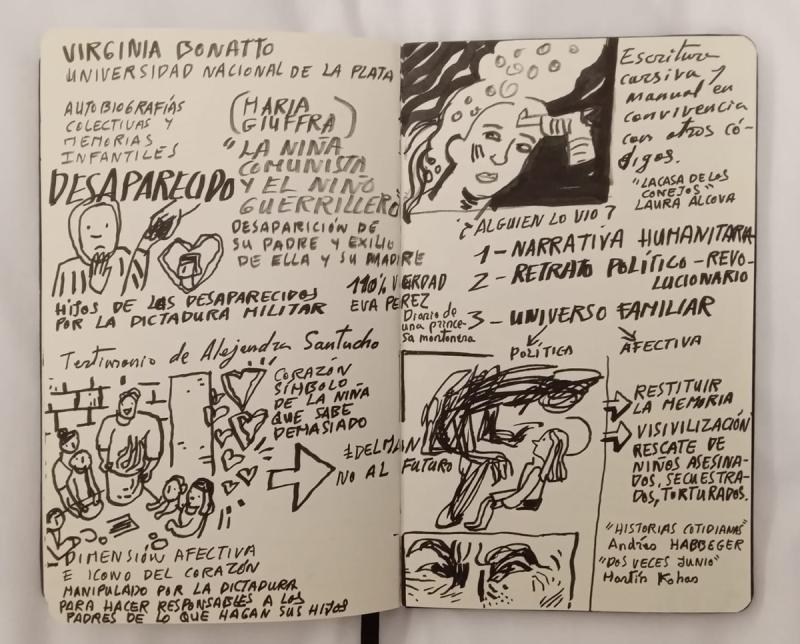 VIRGINIA BONATTO
UNIVERSIDAD NACIONAL DE LA PLATA
AUTOBIOGRAFÍAS
COLECTIVAS Y
MEMORIAS
INFANTILES
(MARIA
GIUFFRA)
"LA NIÑA
COMUNISTA
Y EL NIÑO
GUERRILLERO
DESAPARICIÓN DE
SU PADRE Y EXILIO
DE ELLA Y SU MADRE
DESAPARECIDO
HIJOS DE LAS DESAPARECIDOS
POR LA DICTADURA MILITAR
110% VERDAD
EVA PEREZ
Diario de
una prince-
sa montonera
Testimonio de Alejandra Santucho
CORAZÓN
SÍMBOLO
DE LA NIÑA
QUE SABE
DEMASIADO
EDELMAN
NO AL FUTURO
DIMENSIÓN AFECTIVA
E ICONO DEL CORAZÓN
MANIPULADO POR LA DICTADURA
PARA HACER RESPONSABLES A LOS
PADRES DE LO QUE HAGAN SUS HIJOS
Escritura
cursiva y
manual en
convivencia
con otros có-
digos.
"LA CASA DE LOS
CONEJOS"
LAURA ALCOVA
¿ALGUIEN LO VIO?
1-NARRATIVA HUMANITARIA
2-RETRATO POLÍTICO-REVO-
LUCIONARIO
3-UNIVERSO FAMILIAR
POLÍTICA
AFECTIVA
RESTITUIR
LA MEMORIA
VISIVILIZACIÓN
RESCATE DE
NIÑOS ASESINA-
DOS, SECUESTRA-
DOS, TORTURADOS.
"HISTORIAS COTIDIANAS"
Andrés HABBEGER
"DOS VECES JUNIO"
Martín Kohas